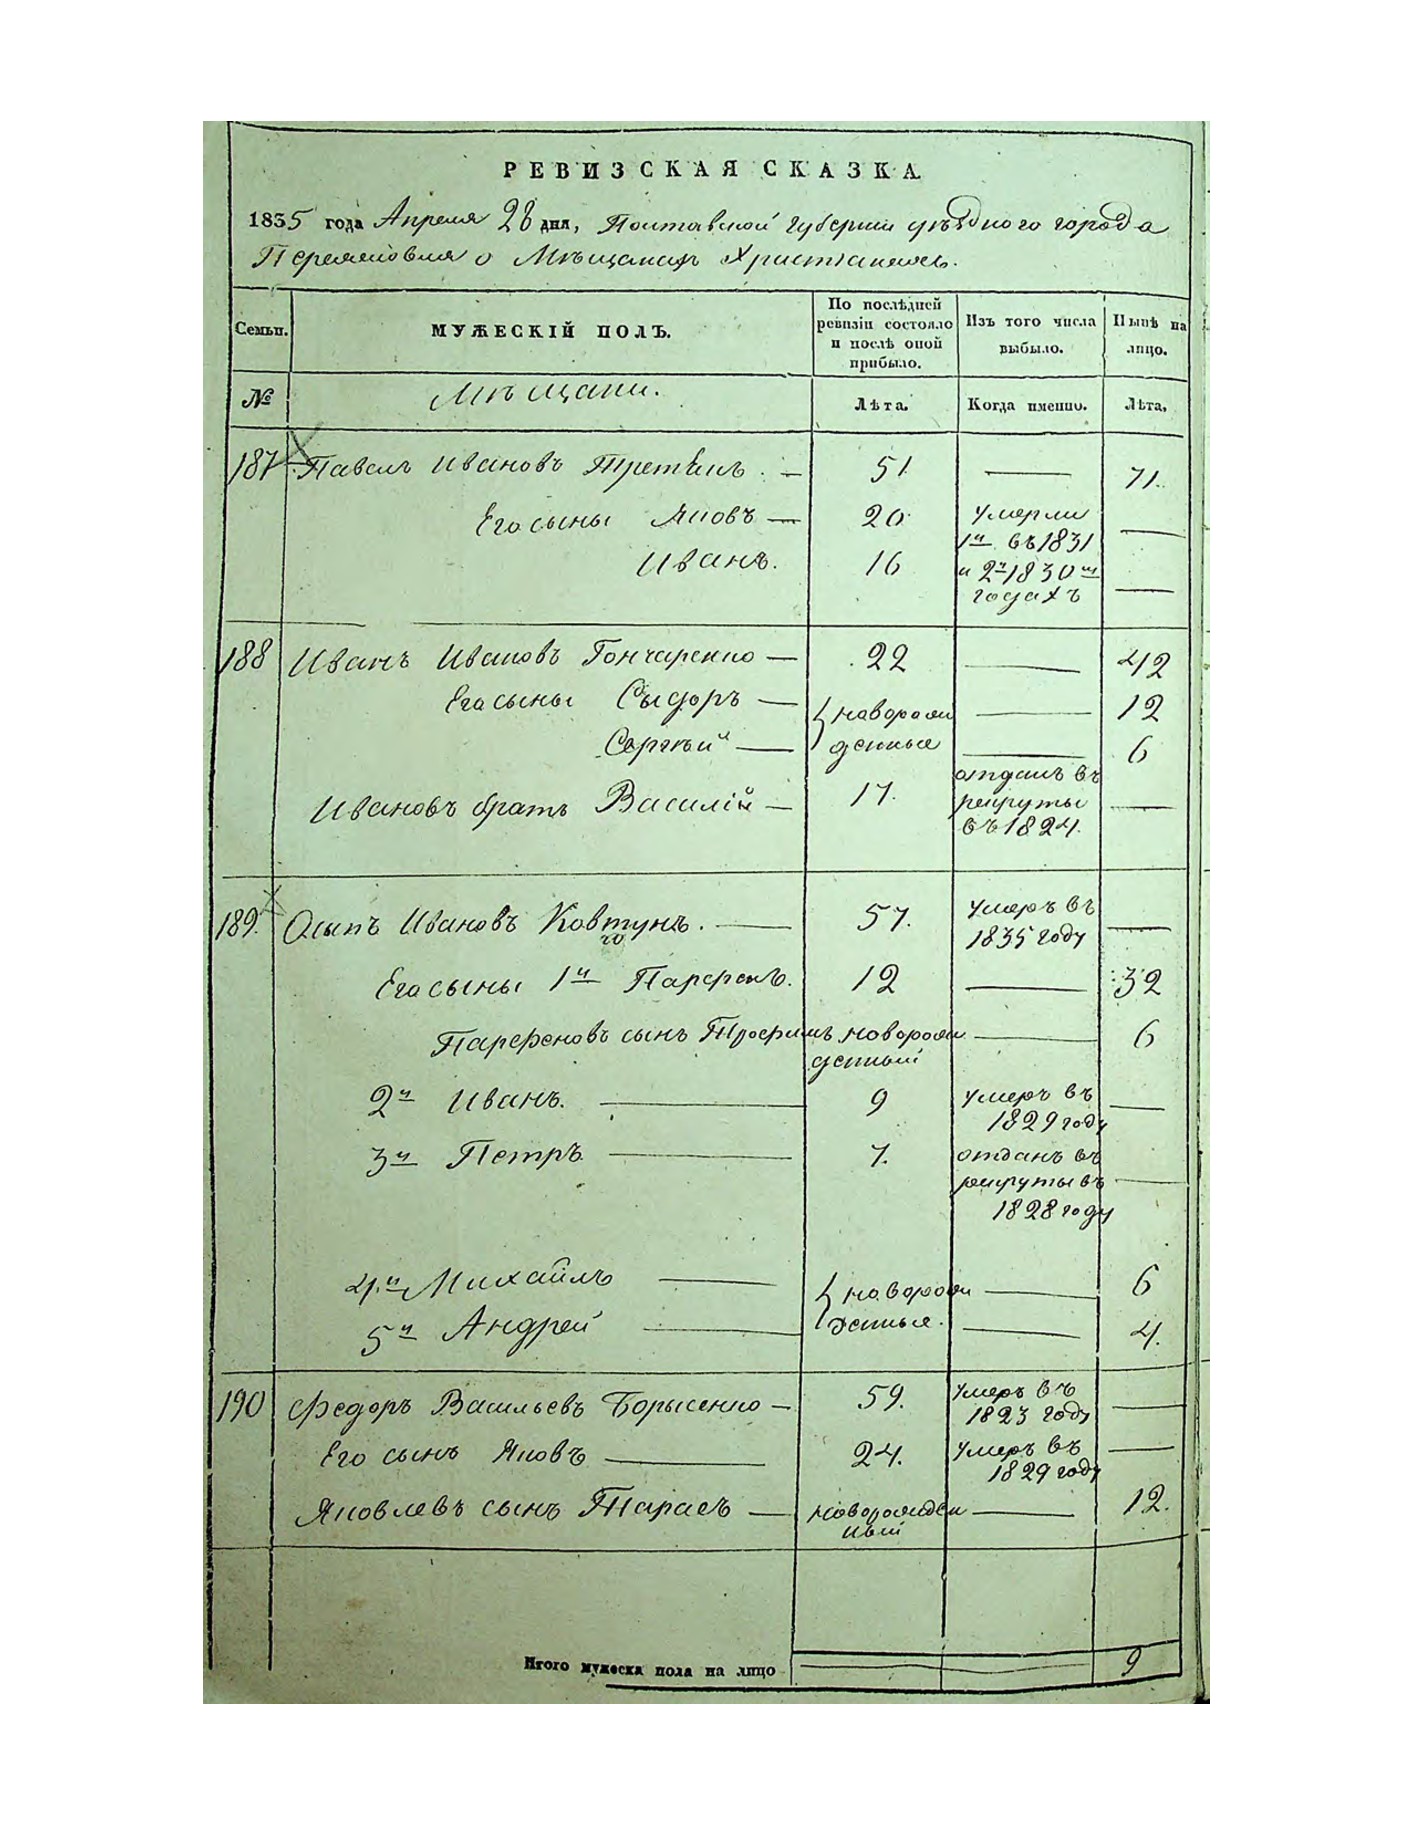 РЕВИЗСКАЯ СКАЗКА
1835 года Апреля 28 дня, Полтавской губернии уѣздного города
о Мѣщанахъ Христианахъ.
Семьи.
МУЖЕСКІЙ ПОЛЪ.
По послѣдней ревизіи состояло и послѣ оной прибыло.
Изъ того числа выбыло.
Нынѣ на лицо.
№
Мѣщани.
Лѣта.
Когда именно.
Лѣта.
187 Павелъ Ивановъ 51 — 71.
Его сыны Яковъ — 20 умерли
1й въ 1831 —
Иванъ. 16 и 2й 1830м
годахъ —
188 Иванъ Ивановъ Гончаренко — 22 — 42
Его сыны Сыдоръ — новорож — 12
Сергѣй — денные — 6
отданъ въ
Ивановъ братъ Василій — 17. рекруты —
въ 1824.
189. Осыпъ Ивановъ Ковтунъ. — 57. умеръ въ —
1835 году
Его сыны 1й Парфенъ. 12 — 32
Парфеновъ сынъ Трофимъ новорож — 6
денный
2й Иванъ. — 9 умеръ въ —
1829 году
3й Петръ — 7. отданъ въ
рекруты въ —
1828 году
4й Михайлъ — новорож — 6
5й Андрей — денные. — 4.
190 Федоръ Васильевъ Борысенко — 59. умеръ въ —
1823 году
Его сынъ Яковъ — 24. умеръ въ —
1829 году
Яковлевъ сынъ Тарасъ — новорожден — 12.
ный
Итого мужеска пола на лицо — — 9